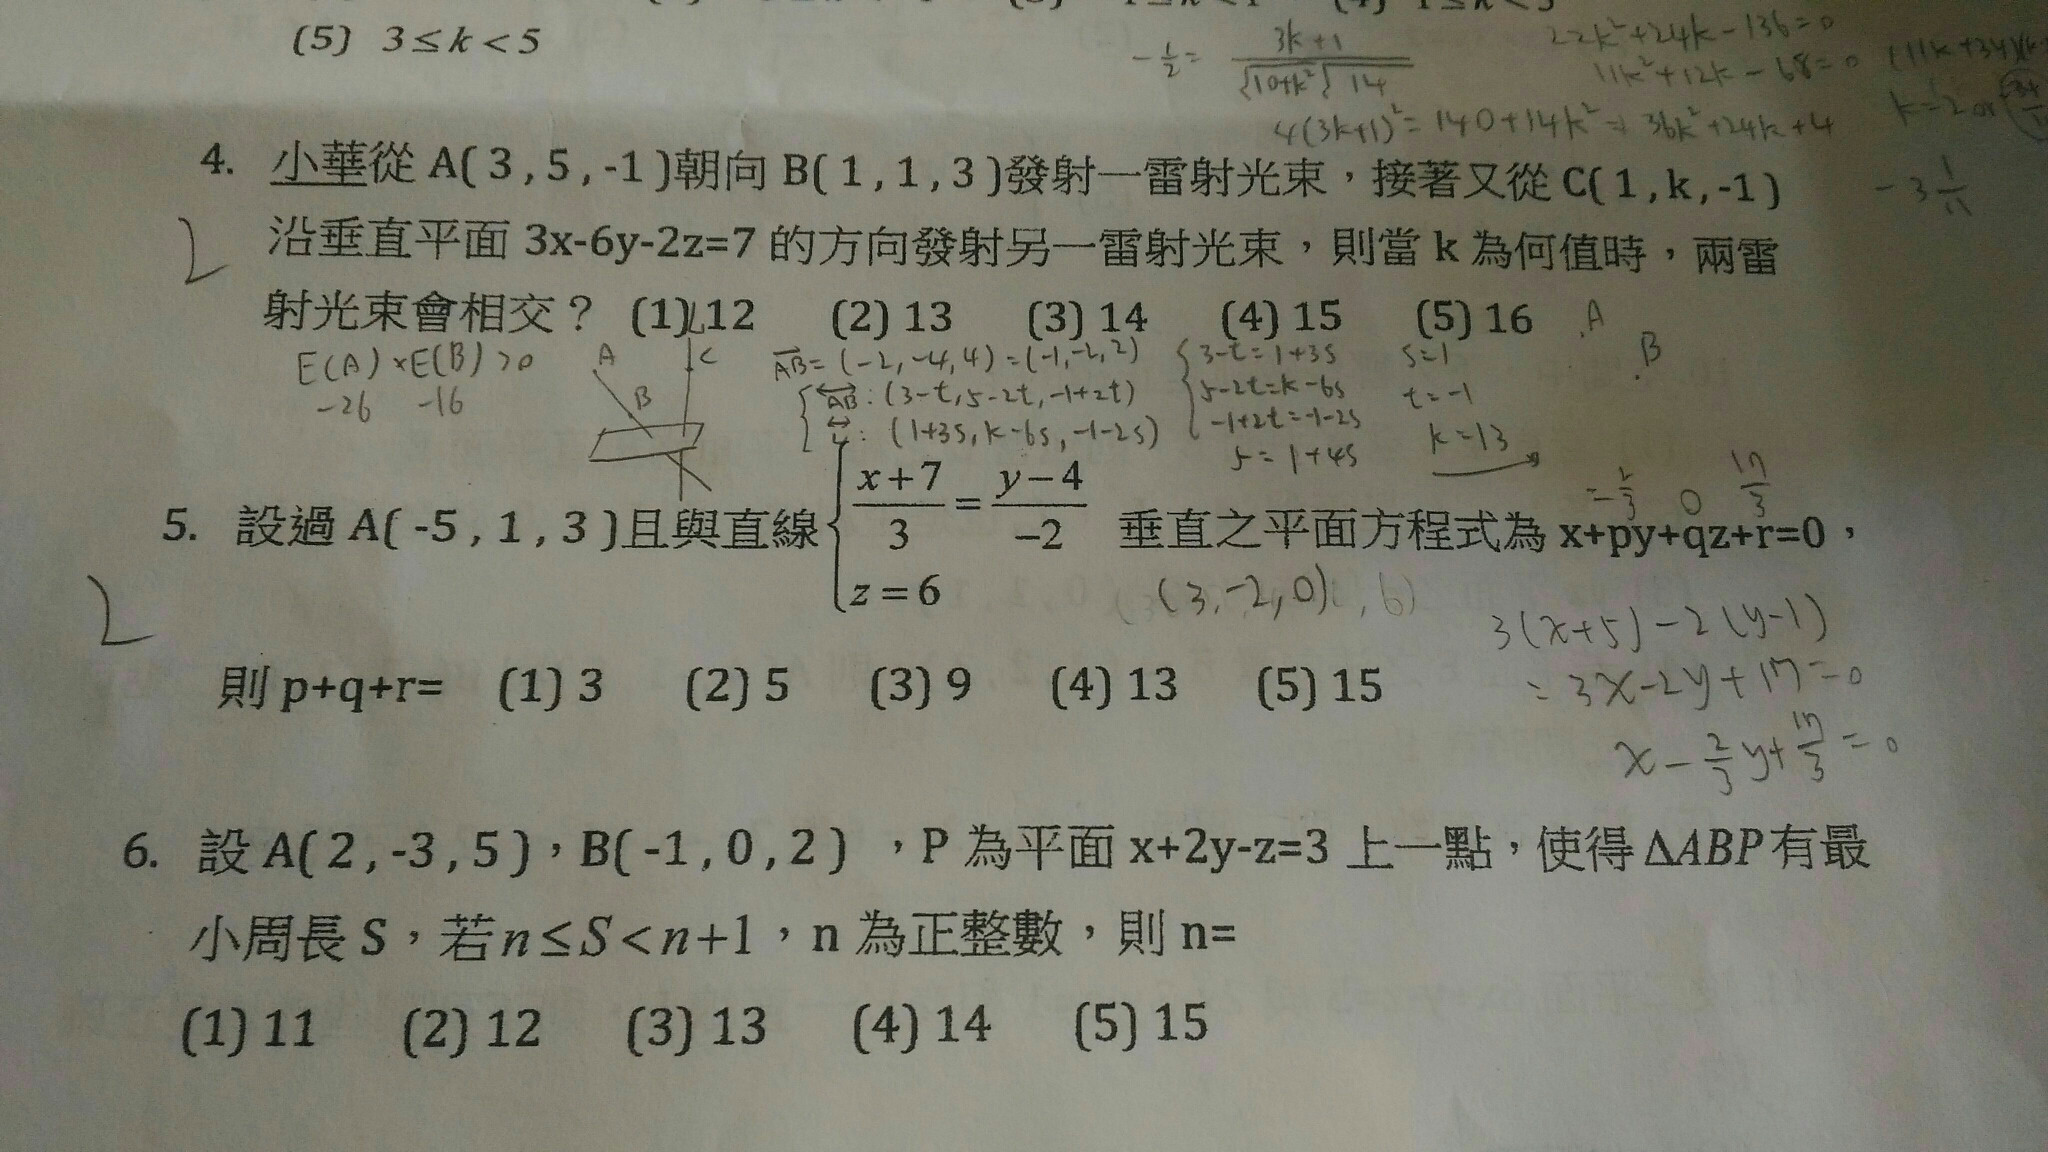 (5) 3≤k<5
-1/2 = (3k+1)/(√(10+k²)√14)
22k²+24k-136=0
11k²+12k-68=0
4(3k+1)²=140+14k²⇒36k²+24k+4
4. 小華從 A( 3 , 5 , -1 )朝向 B( 1 , 1 , 3 )發射一雷射光束，接著又從 C( 1 , k , -1 )
-3 1/11
沿垂直平面 3x-6y-2z=7 的方向發射另一雷射光束，則當 k 為何值時，兩雷
射光束會相交？ (1) 12 (2) 13 (3) 14 (4) 15 (5) 16
E(A)×E(B)>0
-26 -16
A B C L
A B
AB=(-2,-4,4)=(-1,-2,2)
AB:(3-t,5-2t,-1+2t)
L:(1+3s,k-6s,-1-2s)
3-t=1+3s
5-2t=k-6s
-1+2t=-1-2s
5=1+4s
s=1
t=-1
k=13
5. 設過 A( -5 , 1 , 3 )且與直線{(x+7)/3=(y-4)/-2, z=6 垂直之平面方程式為 x+py+qz+r=0，
=-2/3 0 17/3
(3,-2,0)
3(x+5)-2(y-1)
=3x-2y+17=0
x-2/3y+17/3=0
則 p+q+r= (1) 3 (2) 5 (3) 9 (4) 13 (5) 15
6. 設 A( 2 , -3 , 5 )，B( -1 , 0 , 2 ) ，P 為平面 x+2y-z=3 上一點，使得 ΔABP 有最
小周長 S，若 n≤S<n+1，n 為正整數，則 n=
(1) 11 (2) 12 (3) 13 (4) 14 (5) 15